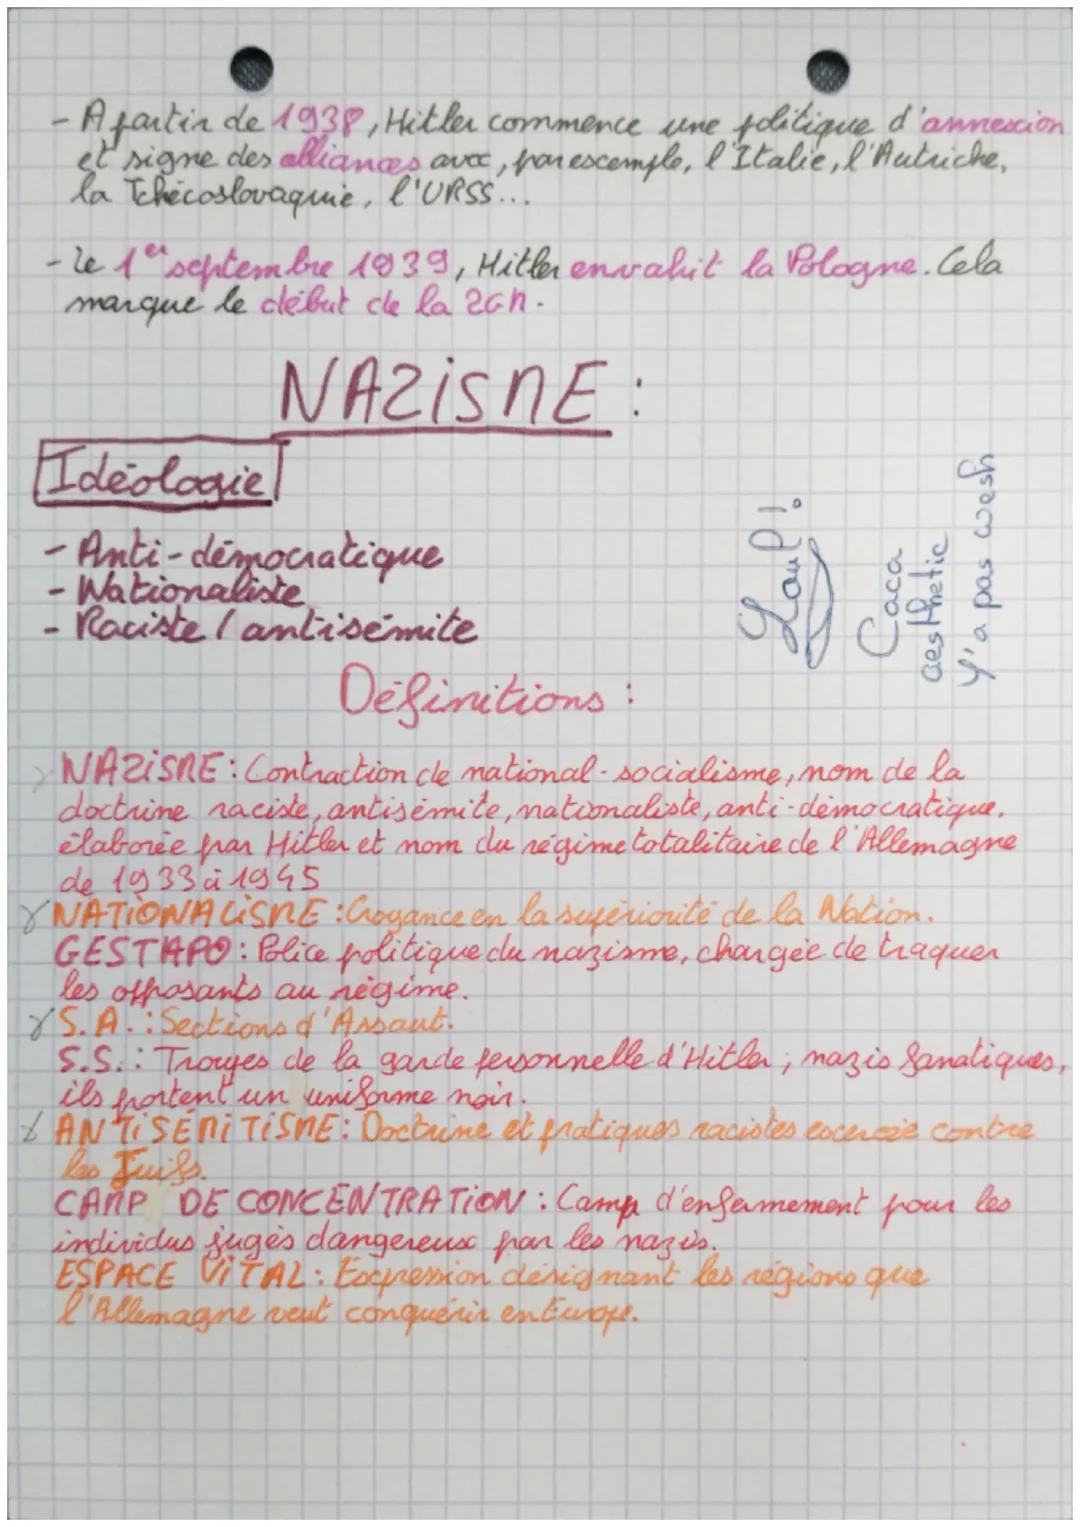 - A partir de 1938, Hitler commence une politique d'annexion
et signe des alliances avec, par exemple, l'Italie, l'Autriche,
la Tchécoslovaquie, l'URSS...
- Le 1er septembre 1939, Hitler envahit la Pologne. Cela
marque le début de la 2GM.
NAZISME :
Idéologie
- Anti-démocratique
- Nationaliste
- Raciste / antisémite
Caca
aesthetic
Y'a pas wesh
Définitions :
NAZISME : Contraction de national-socialisme, nom de la
doctrine raciste, antisémite, nationaliste, anti-démocratique,
élaborée par Hitler et nom du régime totalitaire de l'Allemagne
de 1933 à 1945
NATIONALISME : Croyance en la supériorité de la Nation.
GESTAPO : Police politique du nazisme, chargée de traquer
les opposants au régime.
S.A. : Sections d'Assaut.
S.S. : Troupes de la garde personnelle d'Hitler ; nazis fanatiques,
ils portent un uniforme noir.
ANTISÉMITISME : Doctrine et pratiques racistes exercée contre
les Juifs.
CAMP DE CONCENTRATION : Camp d'enfermement pour les
individus jugés dangereux par les nazis.
ESPACE VITAL : Expression désignant les régions que
l'Allemagne veut conquérir en Europe.